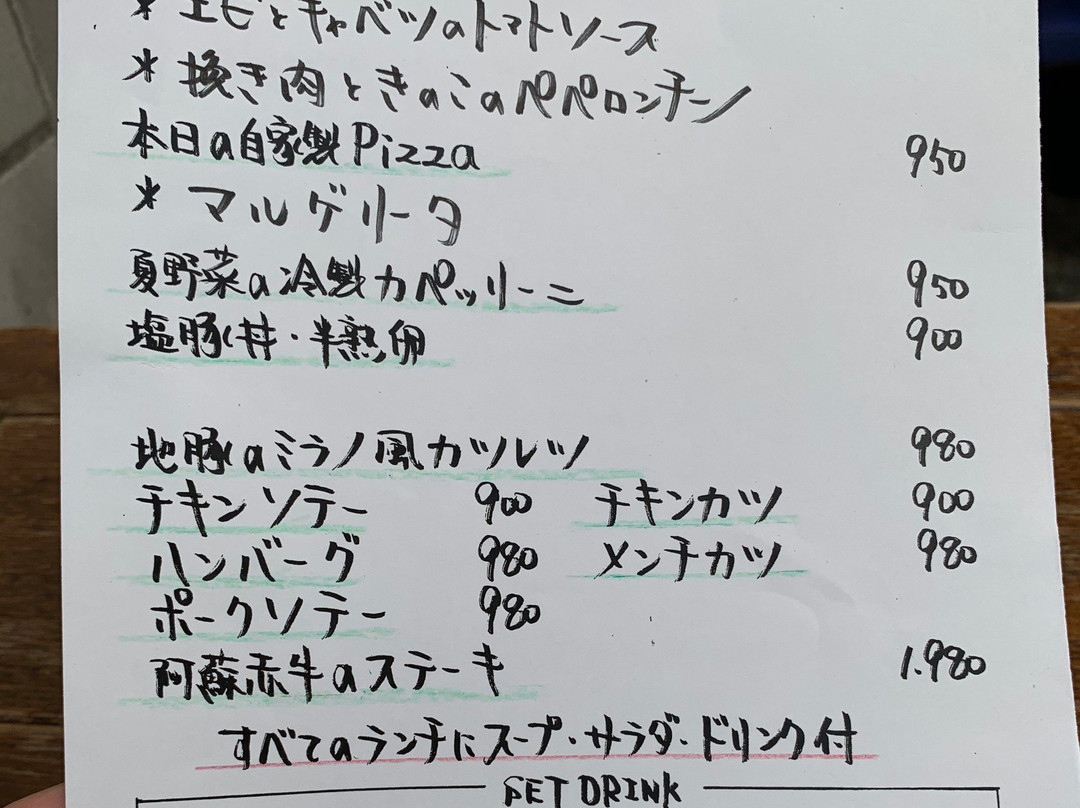 * エビとキャベツのトマトソース
* 挽き肉ときのこのペペロンチーノ
本日の自家製Pizza 950
* マルゲリータ
夏野菜の冷製カペッリーニ 950
塩豚丼・半熟卵 900
地豚のミラノ風カツレツ 980
チキンソテー 900 チキンカツ 900
ハンバーグ 980 メンチカツ 980
ポークソテー 980
阿蘇赤牛のステーキ 1.980
すべてのランチにスープ・サラダ・ドリンク付
SET DRINK